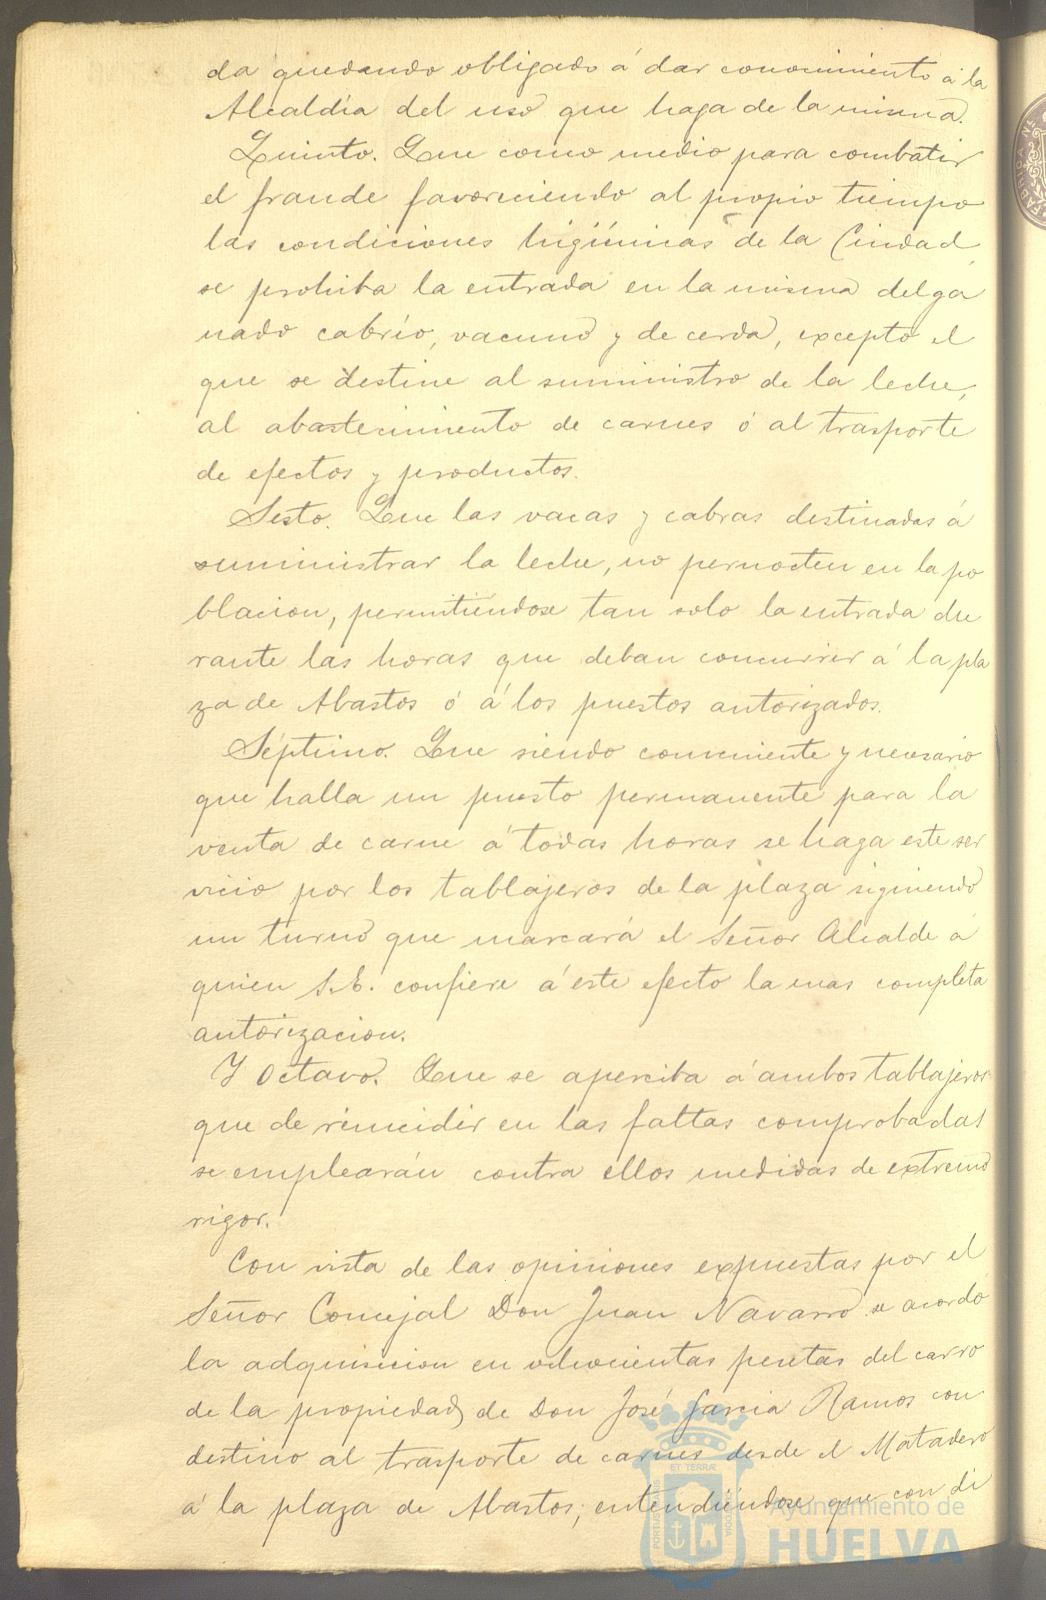 da quedando obligado á dar conocimiento á la
Alcaldía del uso que haga de la misma.
Quinto. Que como medio para combatir
el fraude favoreciendo al propio tiempo
las condiciones higiénicas de la Ciudad
se prohiba la entrada en la misma del ga
nado cabrío, vacuno y de cerda, excepto el
que se destine al suministro de la leche,
al abastecimiento de carnes ó al trasporte
de efectos y productos.
Sesto. Que las vacas y cabras destinadas á
suministrar la leche, no pernocten en la po
blacion, permitiéndose tan solo la entrada du
rante las horas que deban concurrir á la pla
za de Abastos ó á los puestos autorizados.
Séptimo. Que siendo conveniente y necesario
que halla un puesto permanente para la
venta de carne á todas horas se haga este ser
vicio por los tablajeros de la plaza siguiendo
un turno que marcará el Señor Alcalde á
quien S.E. confiere á este efecto la mas completa
autorizacion.
Y Octavo. Que se aperciba á ambos tablajeros
que de reincidir en las faltas comprobadas
se emplearán contra ellos medidas de extremo
rigor.
Con vista de las opiniones expuestas por el
Señor Concejal Don Juan Navarro se acordó
la adquisicion en ochocientas pesetas del carro
de la propiedad de Don José García Ramos con
destino al trasporte de carnes desde el Matadero
á la plaza de Abastos; entendiéndose que con di
Ayuntamiento de
HUELVA